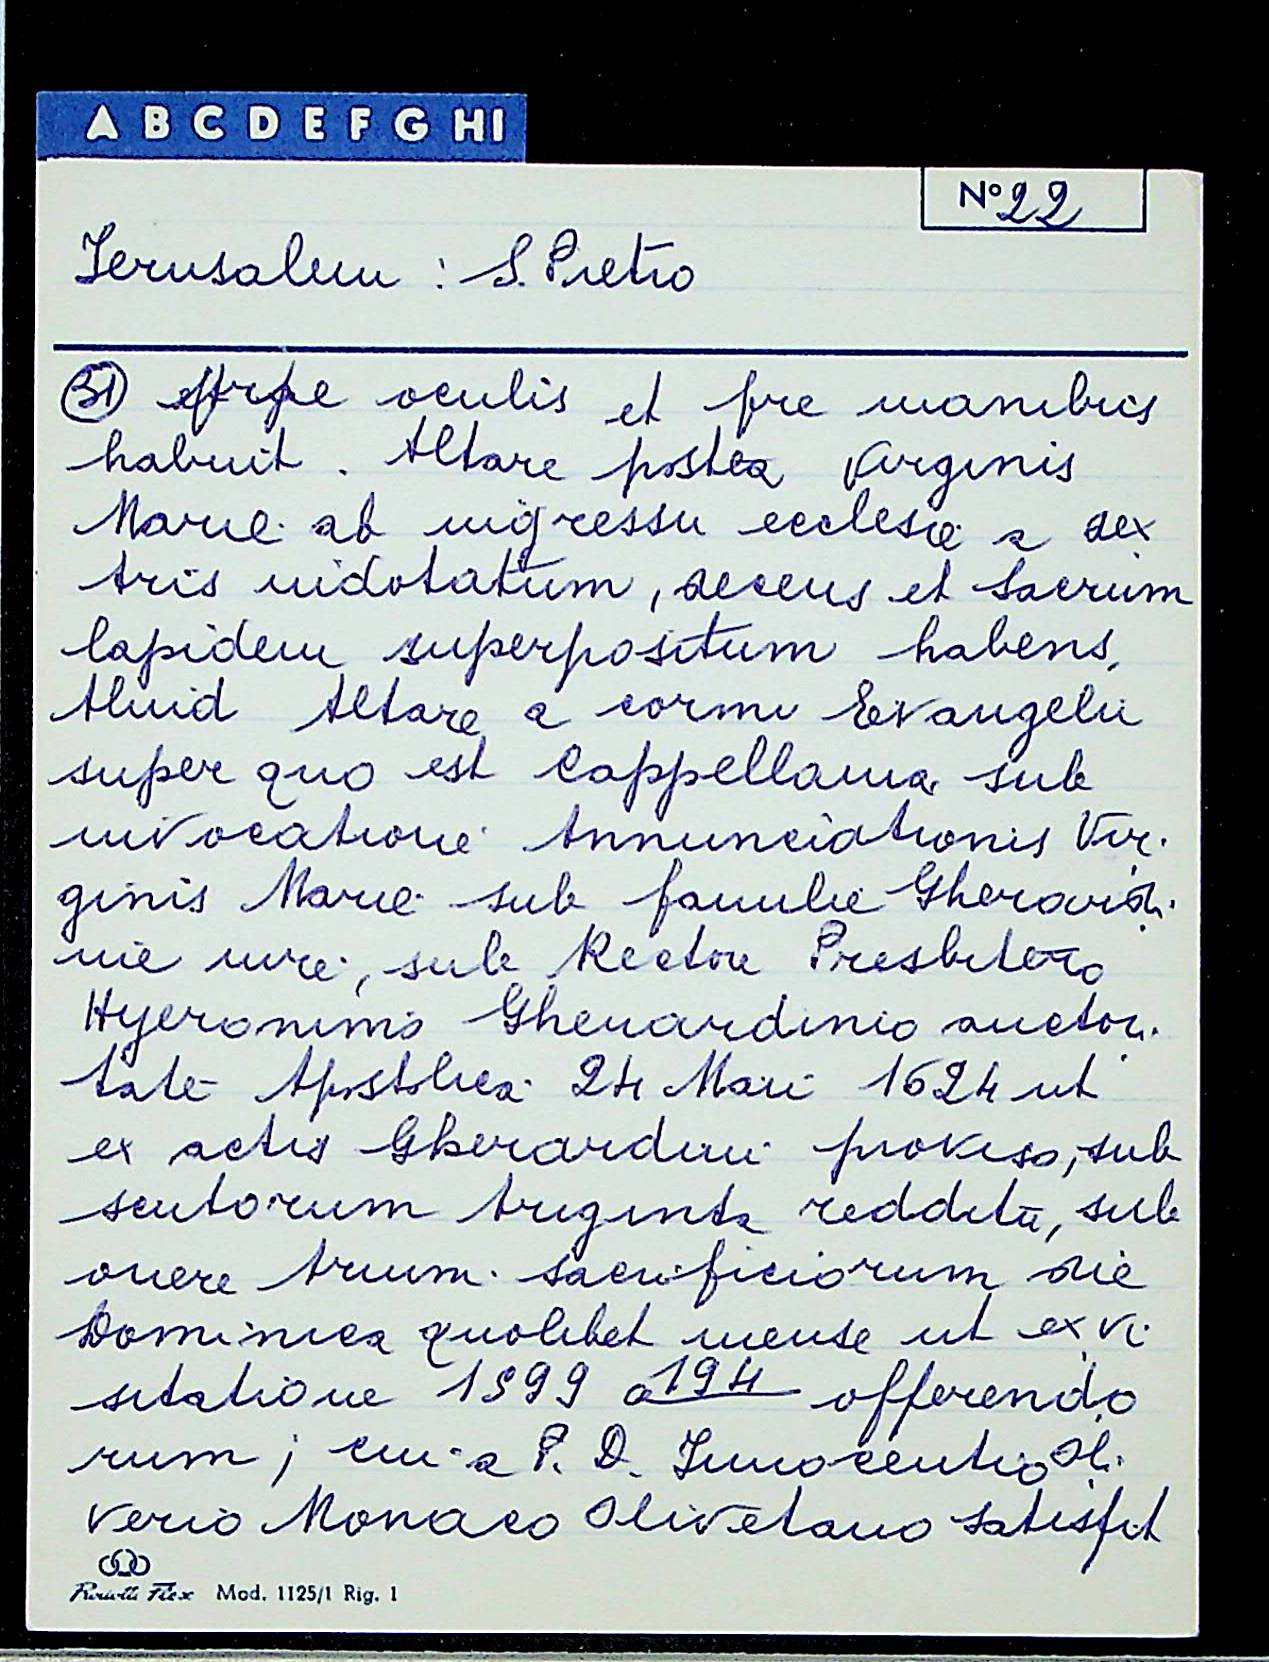 A B C D E F G H I
Nº 22
Jerusalem : S. Pietro
31 pre oculis et pre manibus
habuit. Altare postea Virginis
Marie ab ingressu ecclesie a dex
tris indotatum, decens et sacrum
lapidem superpositum habens,
Aluid Altare a cornu Evangelii
super quo est Cappellania sub
invocatione Annunciationis Vir.
ginis Marie sub familie Gherardi.
nie iure, sub Rectore Presbitero
Hyeronimo Gherardinio auctori.
tate Apostolica 24 Maii 1624 ut
ex actis Gherardini proviso, sub
scutorum triginta redditu, sub
onere trium sacrificiorum die
Dominica quolibet mense ut ex vi
sitatione 1599 a 194 offerendo
rum; cui a P. D. Innocentio Oli.
verio Monaco Olivetano satisfit
Mod. 1125/1 Rig. 1